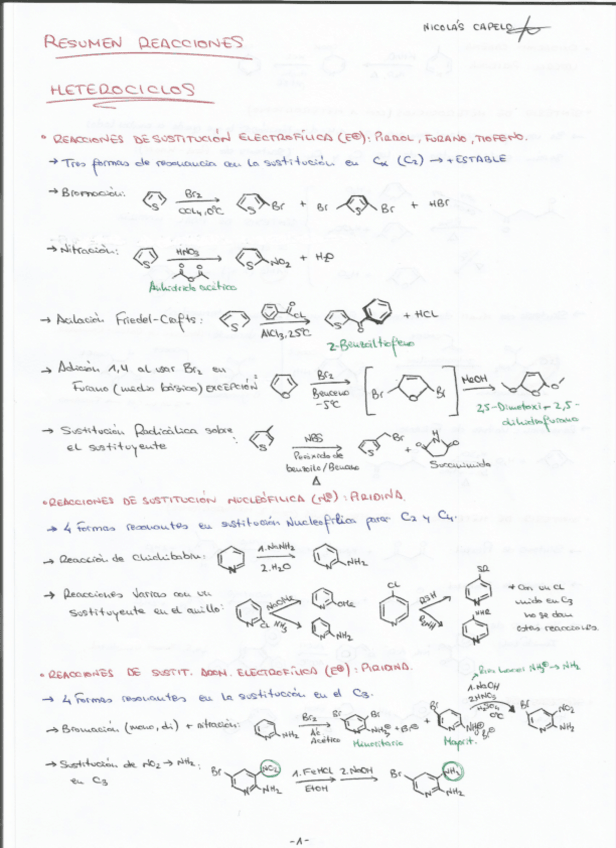 NICOLÁS CAPELO
RESUMEN REACCIONES
HETEROCICLOS
• REACCIONES DE SUSTITUCIÓN ELECTROFÍLICA (E⊕): PIRROL, FURANO, TIOFENO.
→ Tres formas de resonancia con la sustitución en Cα (C2) → + ESTABLE
→ Bromación: S Br2 CCl4, 0°C S Br + Br S Br + HBr
→ Nitración: S HNO3 S NO2 + H2O
Anhídrido acético
→ Acilación Friedel-Crafts: S O Cl AlCl3, 25°C S O + HCl
2-Benzoiltiofeno
→ Adición 1,4 al usar Br2 en
Furano (medio básico) EXCEPCIÓN: O Br2 Benceno -5°C Br O Br MeOH
2,5-Dimetoxi-2,5-
dihidrofurano
→ Sustitución Radicálica sobre
el sustituyente : S NBS S Br + N O O
Peróxido de
benzoilo/Benceno Succinimida
Δ
• REACCIONES DE SUSTITUCIÓN NUCLEÓFILICA (N⊖): PIRIDINA.
→ 4 Formas resonantes en sustitución Nucleofílica para C2 y C4.
→ Reacción de Chichibabin: N 1. NaNH2 2. H2O N NH2
→ Reacciones varias con un
sustituyente en el anillo: N Cl NaOMe N OMe NH3 N NH2 Cl N RSH SR N RNH2 NHR N
* Con un Cl
unido en C3
no se dan
estas reacciones.
• REACCIONES DE SUSTIT. AROM. ELECTROFÍLICA (E⊕): PIRIDINA.
→ 4 Formas resonantes en la sustitución en el C3.
→ Bromación (mono, di) + nitración: N NH2 Br2 Ác. Acético Br Br N NH3⊕ + Br⊖ + Br N NH3⊕ Br⊖
Minoritario
Mayorit.
NH3⊕ → NH2
1. NaOH
2. HNO3
H2SO4
0°C
Br NO2 N NH2
→ Sustitución de NO2 → NH2:
en C3 Br NO2 N NH2 1. Fe HCl EtOH 2. NaOH Br NH2 N NH2
-1-